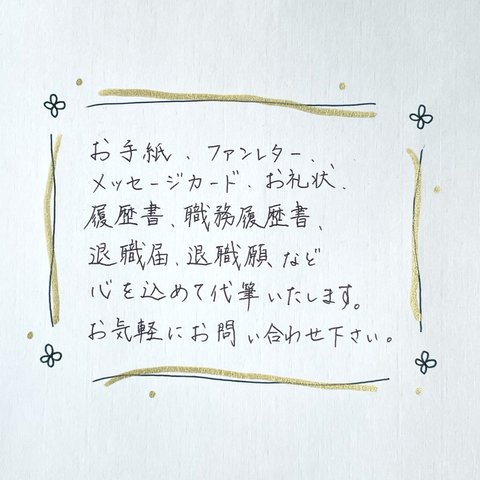 お手紙、ファンレター、
メッセージカード、お礼状、
履歴書、職務履歴書、
退職届、退職願、など
心を込めて代筆いたします。
お気軽にお問い合わせ下さい。